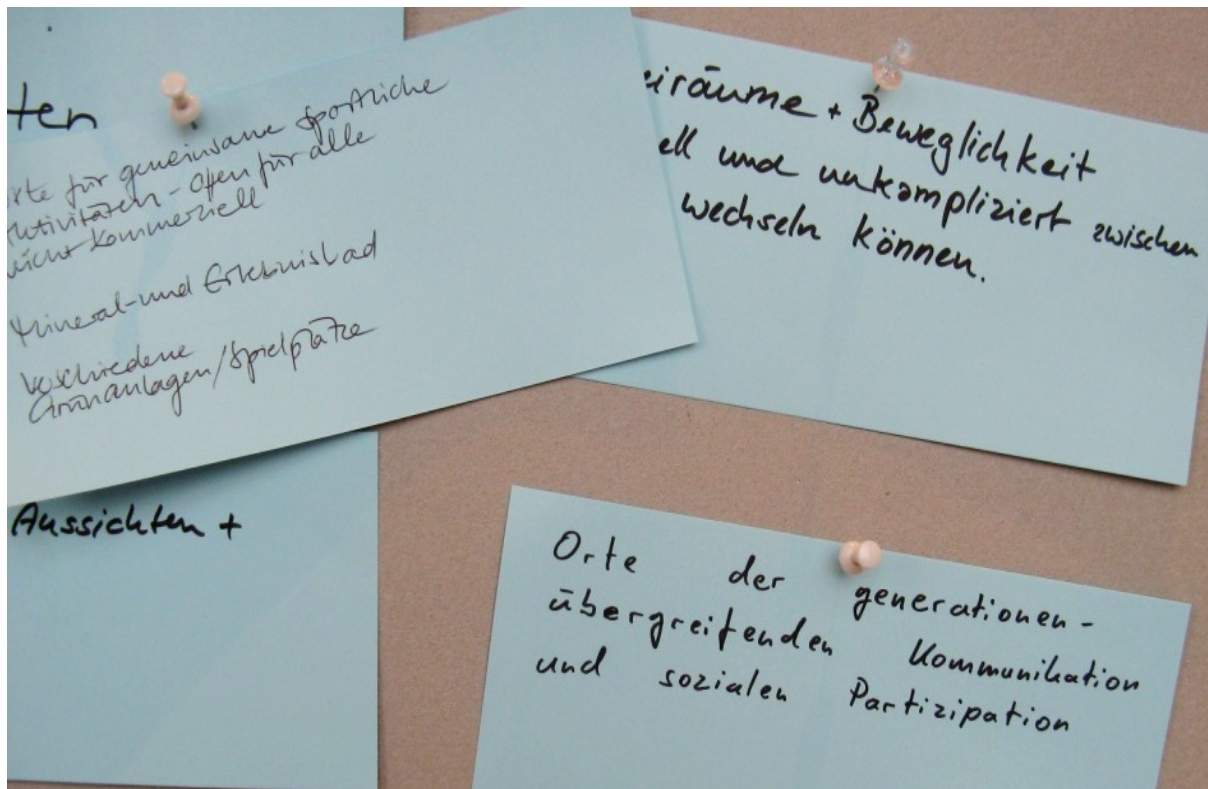 ten
rte für gemeinsame sportliche
ktivitäten - Offen für alle
nicht kommerziell
Mineral- und Erlebnisbad
Verschiedene
Grünanlagen/Spielplätze
Aussichten +
eiräume + Beweglichkeit
ell und unkompliziert zwischen
wechseln können.
Orte der generationen-
übergreifenden Kommunikation
und sozialen Partizipation